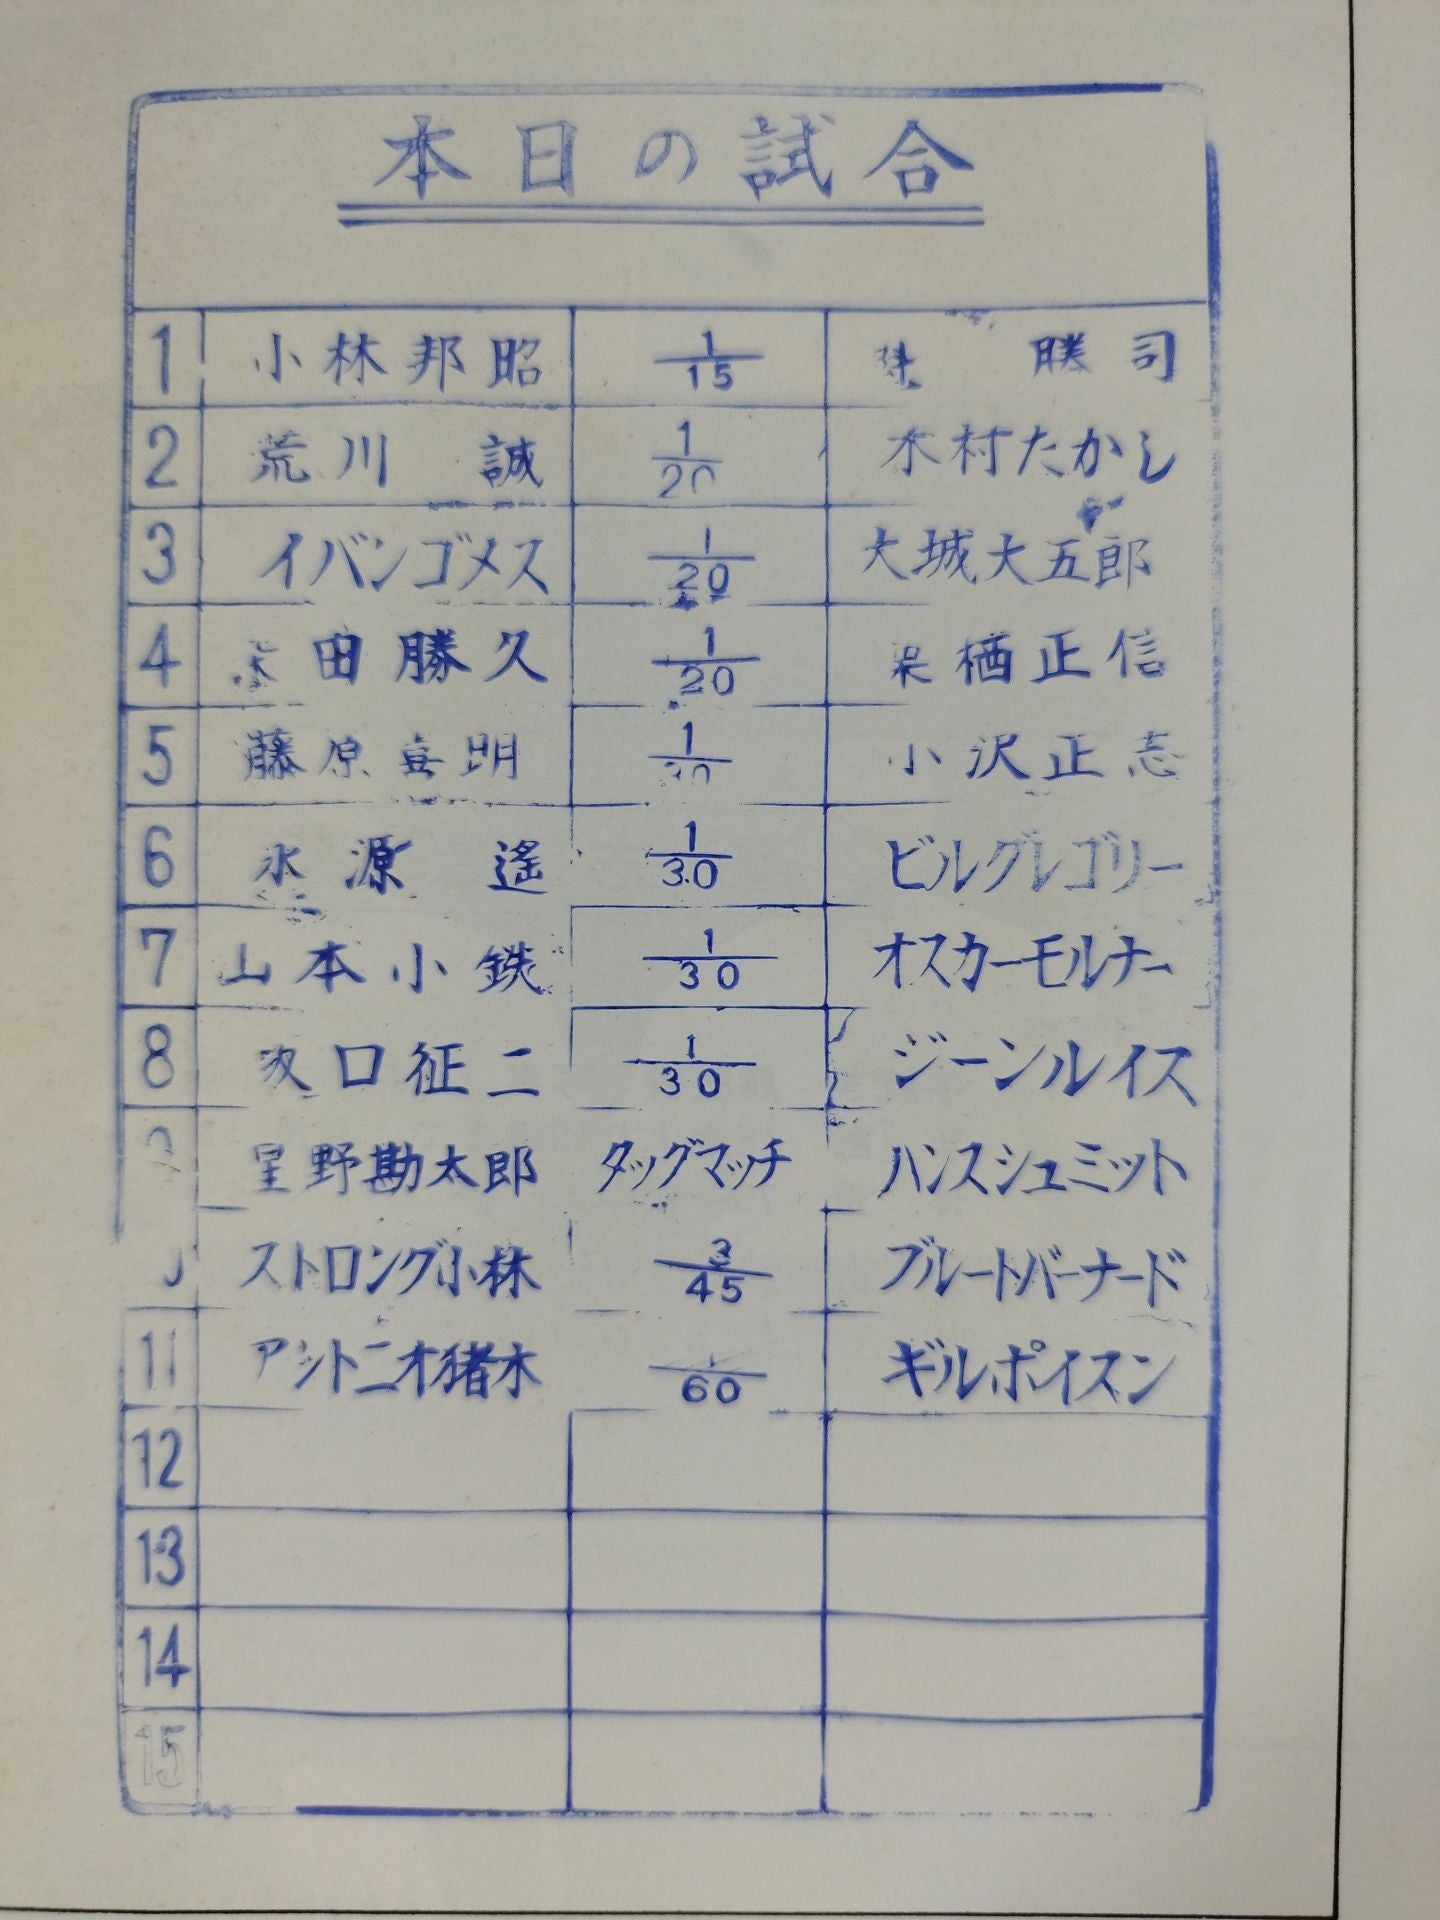 本日の試合
1 小林邦昭 1/15 勝司
2 荒川 誠 1/20 木村たかし
3 イバンゴメス 1/20 大城大五郎
4 木田勝久 1/20 栗栖正信
5 藤原喜明 1/30 小沢正志
6 永源 遙 1/30 ビルグレゴリー
7 山本小鉄 1/30 オスカーモルナー
8 坂口征二 1/30 ジーンルイス
星野勘太郎 タッグマッチ ハンスシュミット
ストロング小林 3/45 ブルートバーナード
11 アントニオ猪木 1/60 ギルポイズン
12
13
14
15